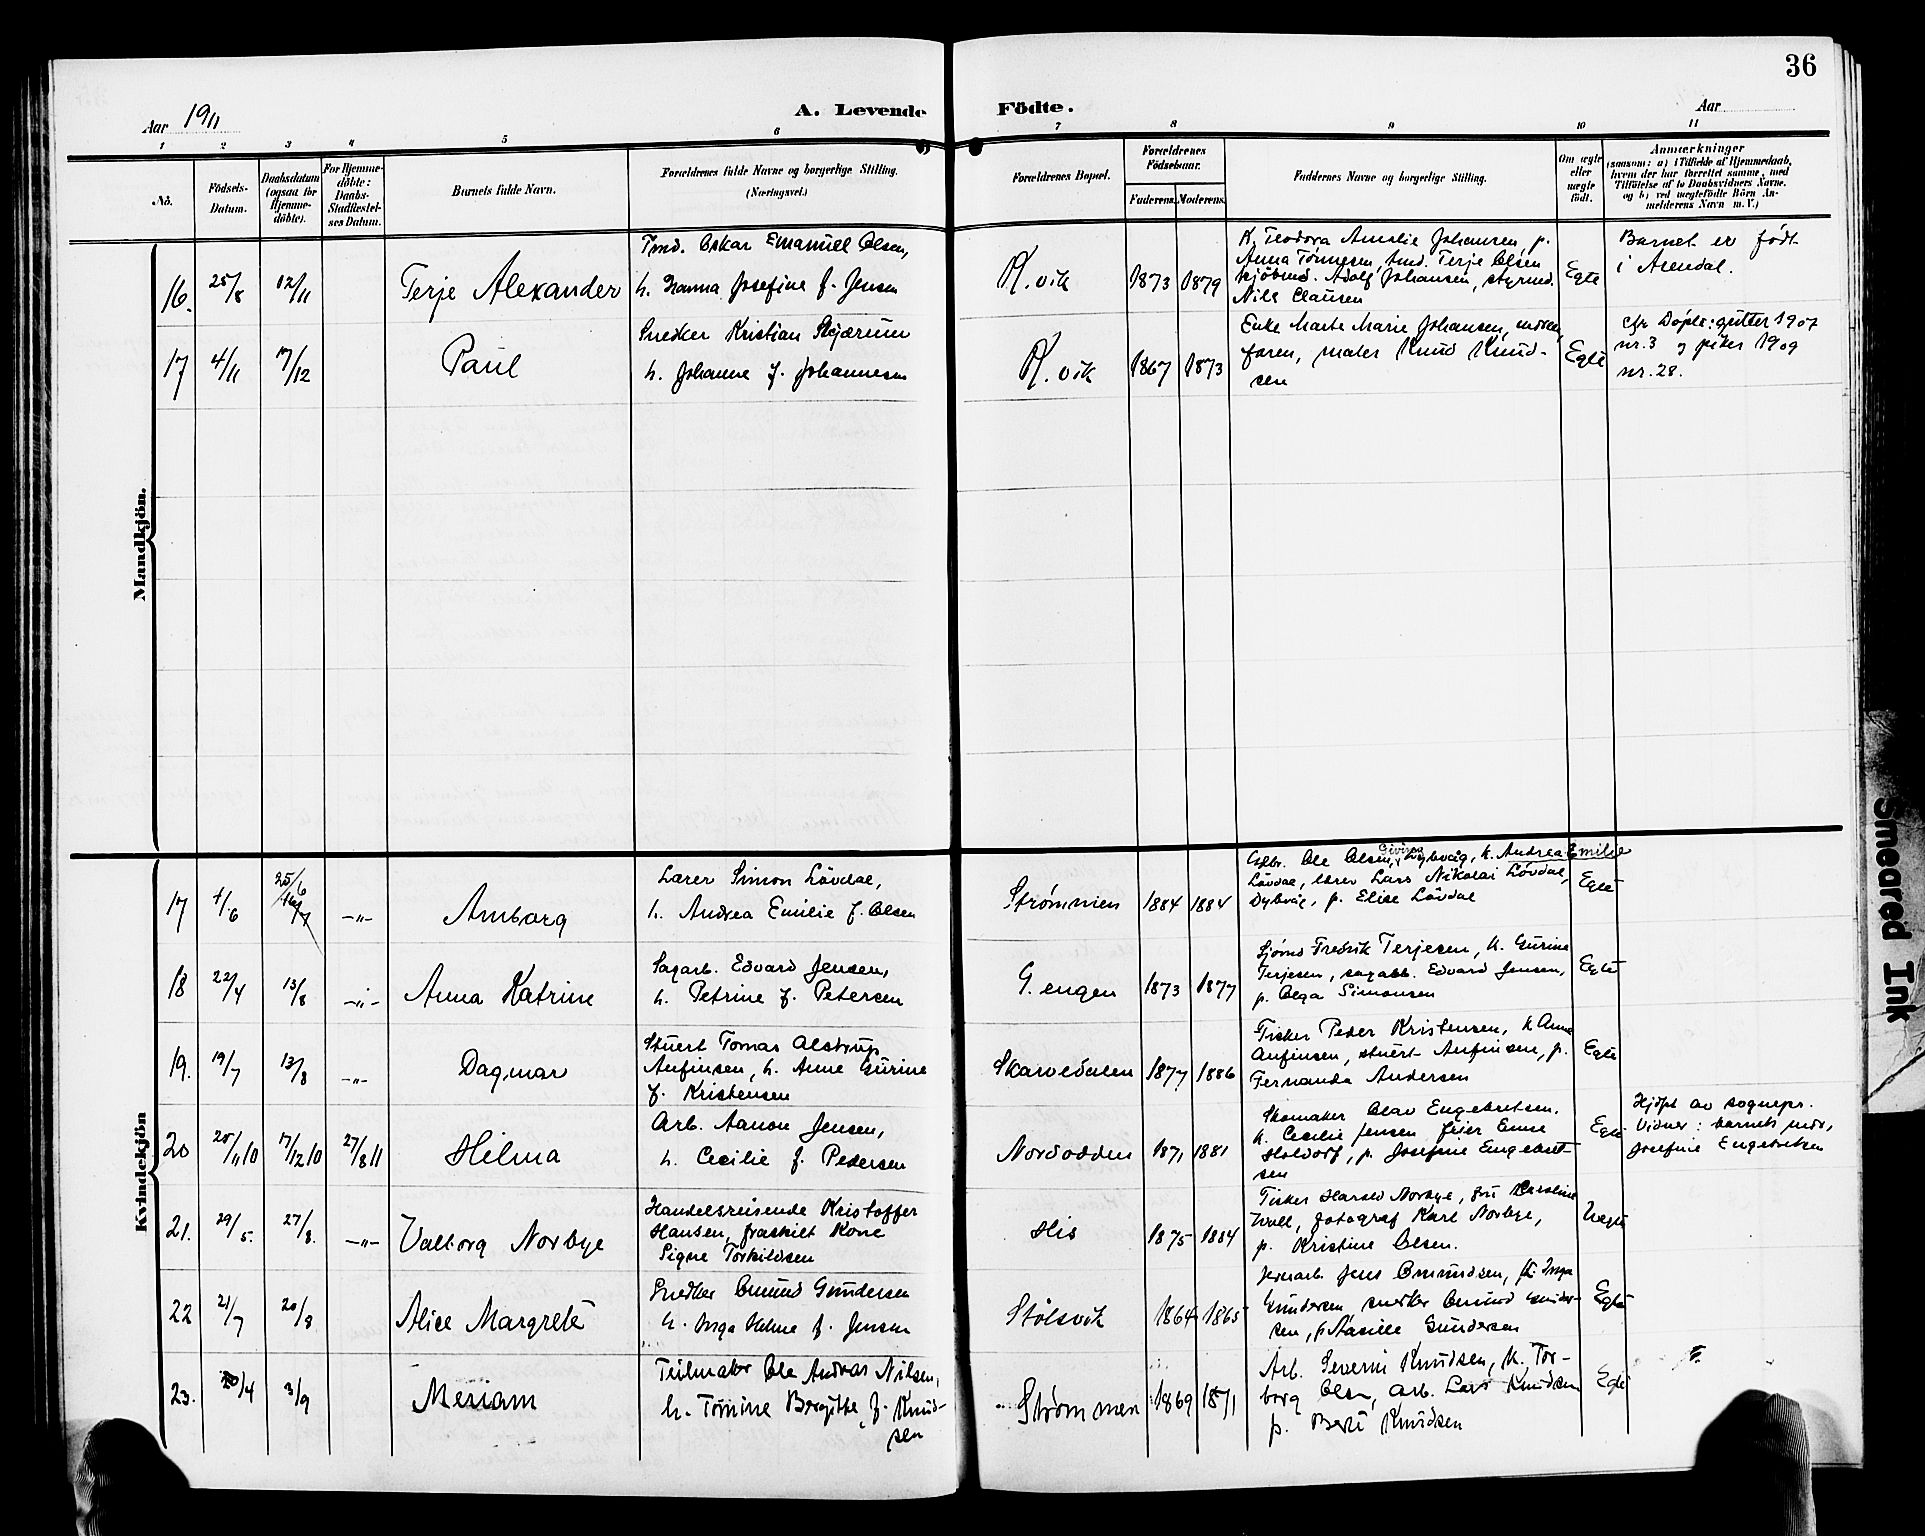 36
Aar 1911
A. Levende Födte.
Aar
1 2 3 4 5 6 7 8 9 10 11
No.
Födsels-Datum.
Daabsdatum (ogsaa for Hjemme-döbte).
For Hjemme-döbte: Daabs-Stadfæstel-ses Datum.
Barnets fulde Navn.
Forældrenes fulde Navne og borgerlige Stilling. (Næringsvei.)
Forældrenes Bopæl.
Forældrenes Födselsaar.
Faderens. Moderens.
Faddernes Navne og borgerlige Stilling.
Om ægte eller uægte födt.
Anmærkninger
(saasom: a) i Tilfælde af Hjemmedaab,
hvem der har forrettet samme, med
Tilföielse af to Daabsvidners Navne.
og b) ved uægtefödte Börn An-
melderens Navn m. V.)
Mandkjön.
16. 25/8 12/11 Terje Alexander
Tmd. Oskar Emanuel Olsen,
h. Hanna Josefine f. Jensen
K. vik 1873 1879
K. Teodora Amalie Johansen, p.
Anna Tönnesen, tmd. Terje Olsen
Adolf Johansen, styrmd.
Nils Clausen
Egte
Barnet er født
i Arendal.
17 4/11 17/12 Paul
Snedker Kristian Skjærum
h. Johanne f. Johannesen
K. vik 1867 1873
Enke Marte Marie Johansen, moren,
faren, maler Knud Knud-
sen
Egte
cfr Döpte: gutter 1907
nr. 3 og piker 1909
nr. 28.
Kvindekjön
17 1/6 25/6 16/7 -"- Anborg
Lærer Simon Lövdal,
h. Andrea Emilie f. Olsen
Strømmen 1884 1884
Ole Olsen, Dybvåg, k. Andrea Emilie
Lövdal, lærer Lars Nikolai Lövdal,
Dybvåg, p. Elise Lövdal
Egte
18 22/4 13/8 -"- Anna Katrine
Sagarb. Edvard Jensen,
h. Petrine f. Petersen
G. engen 1873 1877
Sjömd Fredrik Terjesen, k. Gurine
Terjesen, sagarb. Edvard Jensen,
p. Olga Simonsen
Egte
19. 19/7 13/8 -"- Dagmar
Stuert Tomas Alstrup
Anfinsen, h. Anne Gurine
f. Kristensen
Skarvedalen 1877 1886
Fisker Peder Kristensen, k Anne
Anfinsen, stuert Anfinsen, p.
Fernanda Andersen
Egte
20 25/11 10 17/12 10 27/8 11 Hilma
Arb. Aanon Jensen,
h. Cecilie f. Pedersen
Nordodden 1871 1881
Skomaker Olav Engebretsen.
k. Cecilie Jensen feier Emil
Holdorf, p. Josefine Engebret-
sen
Egte
Hjdpt av sognepr.
Vidner: barnets mor,
Josefine Engebretsen
21. 29/5. 27/8. -"- Valborg Norbye
Handelsreisende Kristoffer
Hansen, fraskilt Kone
Signe Torkildsen
His 1875 1884
Fisker Harald Norbye, fru Karoline
Wall, fotograf Karl Norbye,
p. Kristine Olsen.
Uegte
22 21/7 20/8 Alice Margrete
Snedker Omund Gundersen
h. Inga Helene f. Jensen
Stølsvik 1864 1865
Jernarb. Jens Omundsen, k. Inga
Gundersen, snedker Omund Gunder-
sen, p Aasille Gundersen
Egte
23. 20/4 3/9 Meriam
Seilmaker Ole Andreas Nilsen,
h. Tomine Birgitte, f. Knud-
sen
Strømmen 1869 1871
Arb. Severin Knudsen, k. Tor-
borg Olsen, arb. Lars Knudsen
p. Berte Knudsen
Egte
Smeared Ink